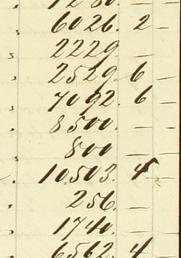 6026. 2
2229 –
2529 6
7092. 6
8500. –
800 –
10.503. 4
256. –
1740. –
6562. 4